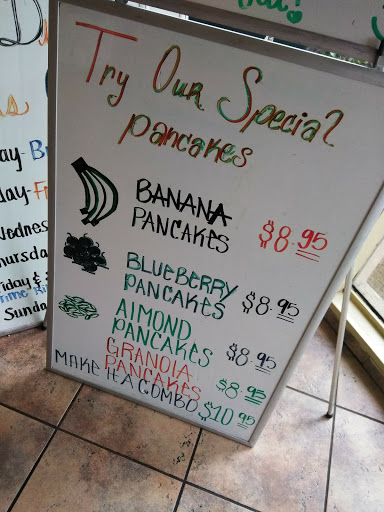 Try Our Special
pancakes
BANANA
PANCAKES $8.95
BLUEBERRY
PANCAKES $8.95
AlMOND
PANCAKES $8.95
GRANOlA
PANCAKES $8.95
MAKE IT A COMBO $10.95
Thursday
Friday &
Sunda